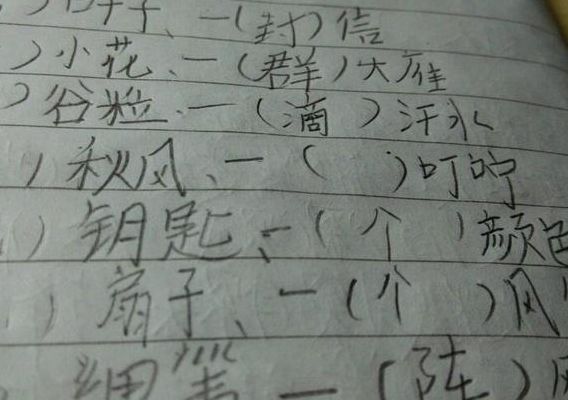 子、一（封）信
）小花、一（群）大雁
）谷粒、一（滴 ）汗水
）秋风、一（ ）叮咛
）钥匙、一（个 ）颜色
）扇子、一（个 ）风
一（阵 ）